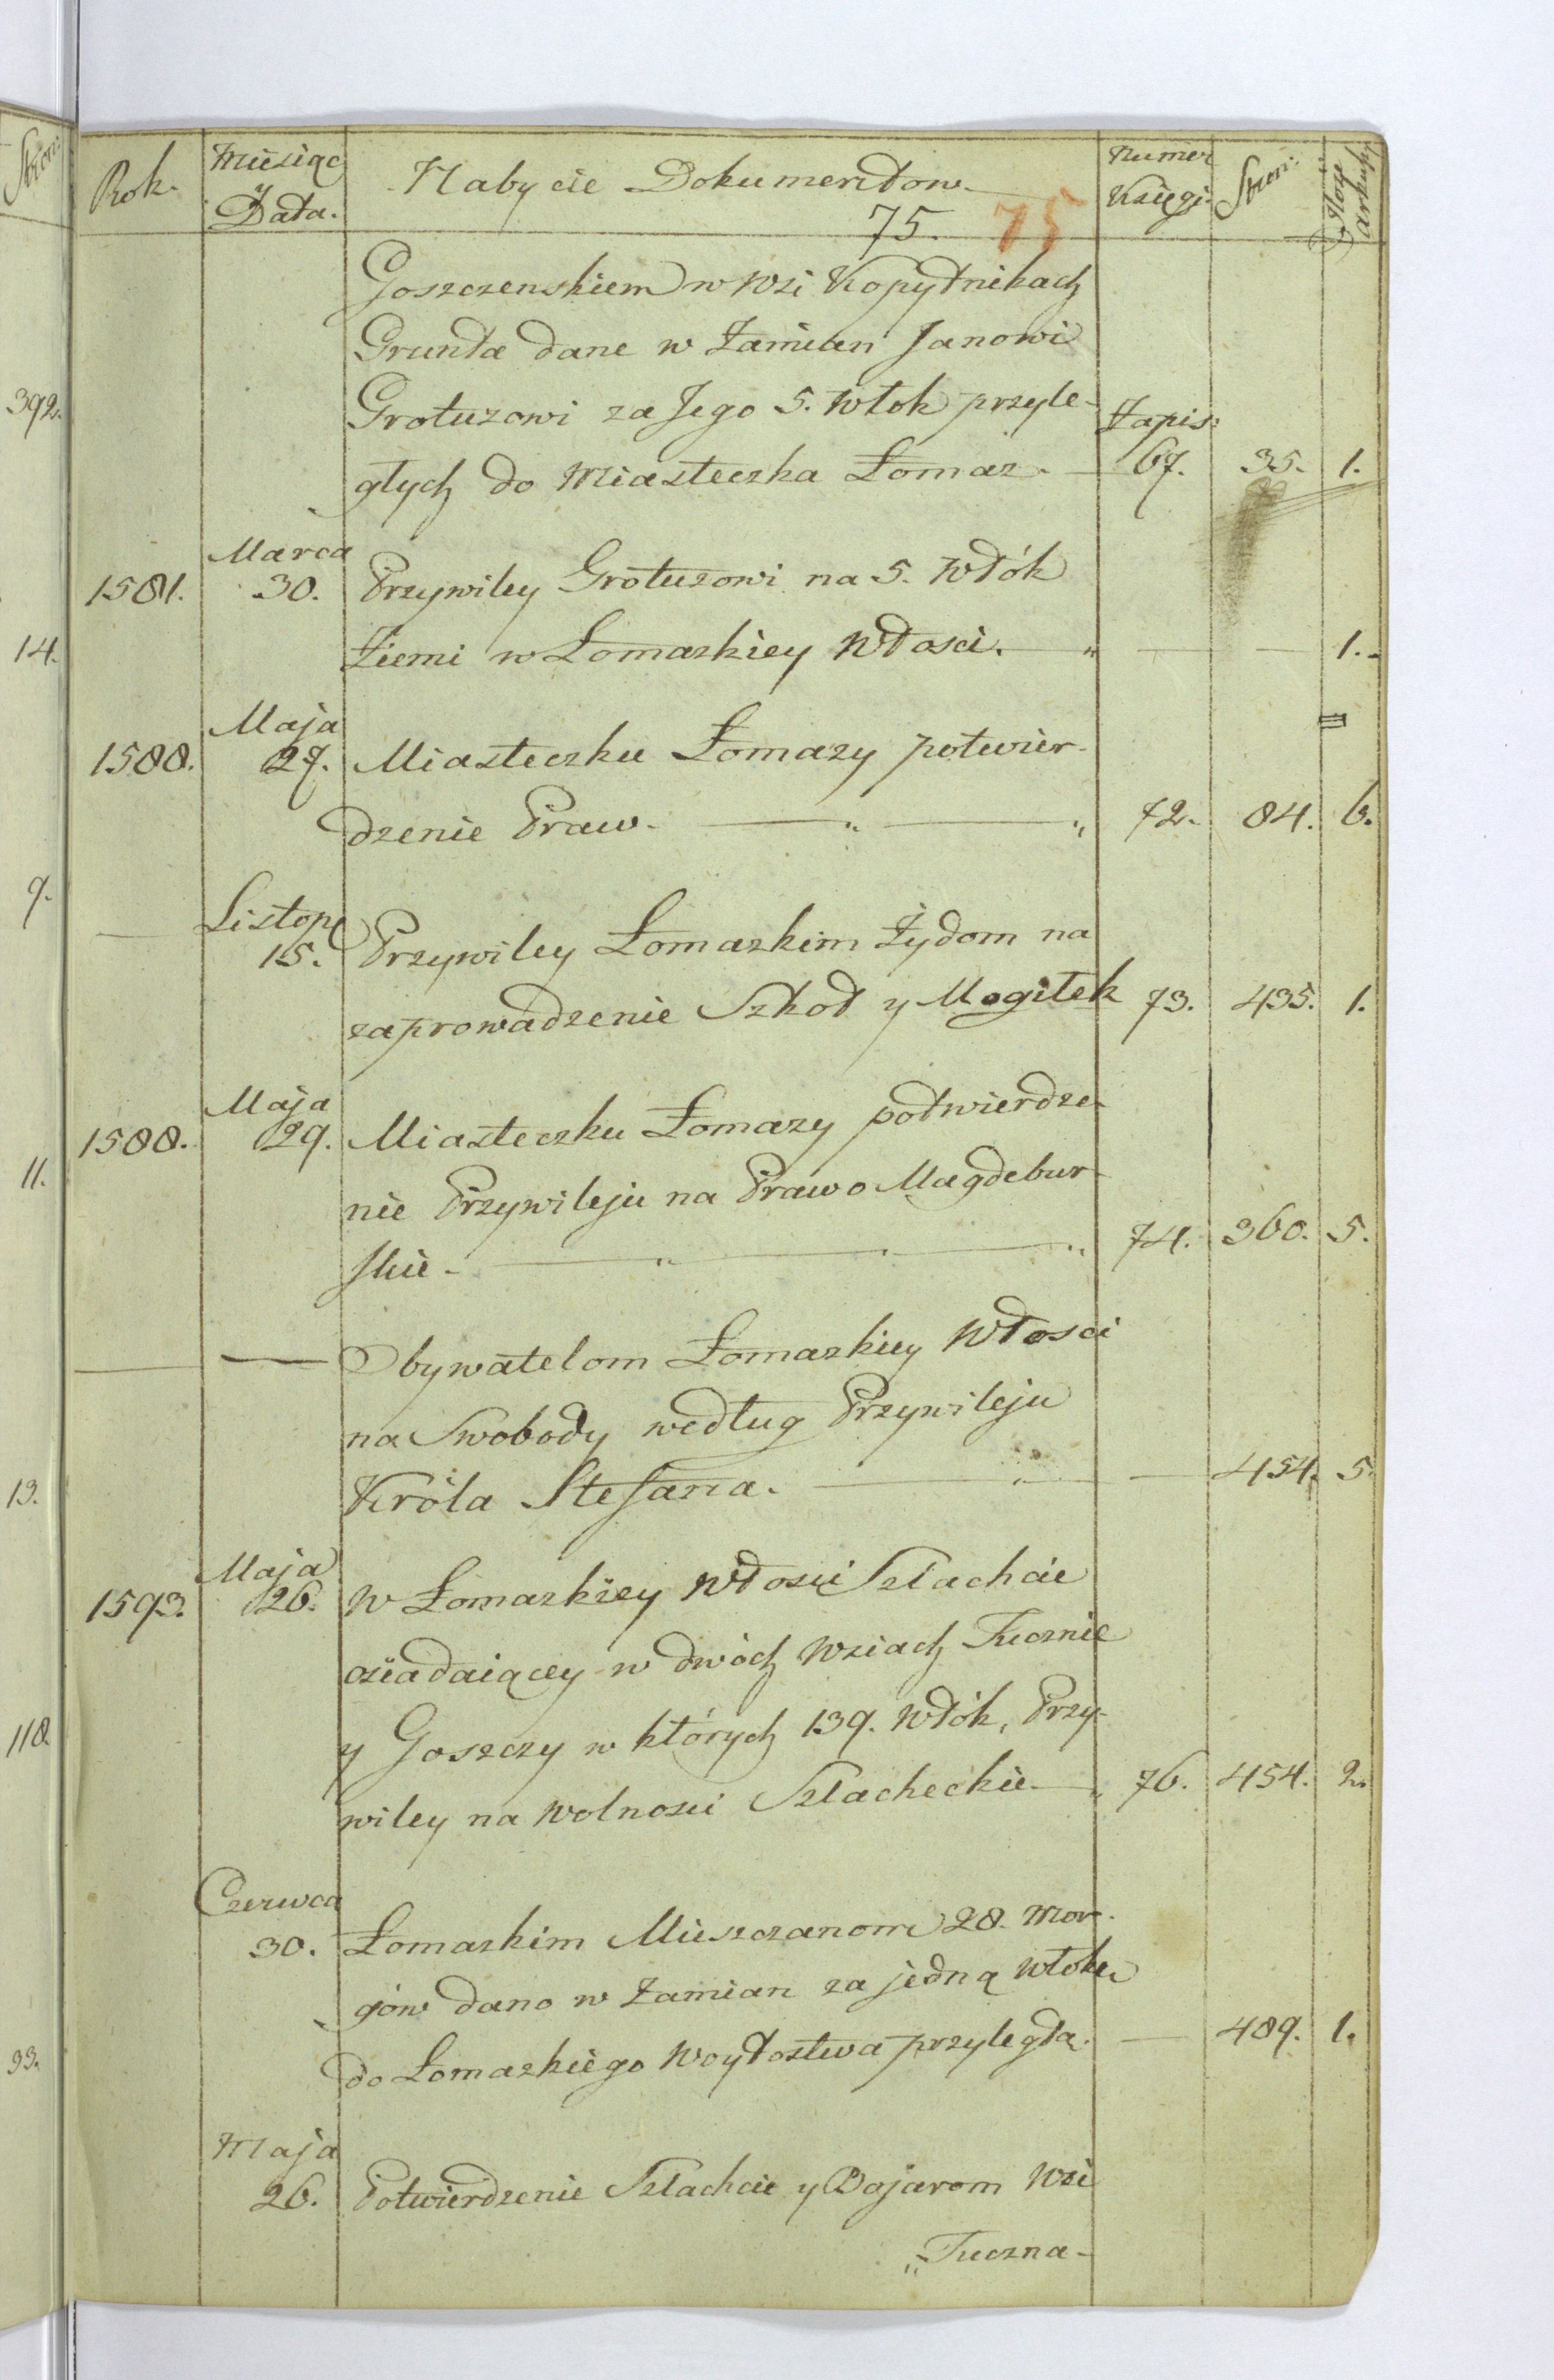 Stron:
392.
14.
9.
11.
13.
118.
93.
Rok. Miesiąc y Data. Nabycie Dokumentow. Numer Księgi. Stron: Ilosc arkuszy
75. 75
Goszczenskiem w Wsi Kopytnikach
Grunta dane w Zamian Janowi
Grotuzowi za Jego 5. Włok przyle-
głych do Miasteczka Łomaz. Zapis: 67. 35. 1.
1581. Marca 30. Przywiley Grotuzowi na 5. Włók
Ziemi w Łomazkiey Włosci. — „ — — 1.
1588. Maja 27. Miasteczku Łomazy potwier-
dzenie Praw. — „ — „ 72. 84. 6.
— Listop 15. Przywiley Łomazkim Żydom na
zaprowadzenie Szkoł y Mogiłek 73. 435. 1.
1588. Maja 29. Miasteczku Łomazy potwierdze-
nie Przywileju na Prawo Magdebur-
skie. — „ — „ — „ 74. 360. 5.
— — Obywatelom Łomazkiey Włosci
na Swobody według Przywileju
Króla Stefana. — „ — — 454. 5.
1593. Maja 26. W Łomazkiey Włosci Szlachcie
osiadaiącey w dwóch Wsiach Tucznie
y Goszczy w których 139. Włók, Przy-
wiley na Wolnosci Szlacheckie — „ 76. 454. 2.
Czerwca 30. Łomazkim Mieszczanom 28. Mor-
gów dano w Zamian za jedną Włokę
do Łomazkiego Woytostwa przyległą. — 489. 1.
Maja 26. Potwierdzenie Szlachcie y Bojarom Wsi
„Tuczna-